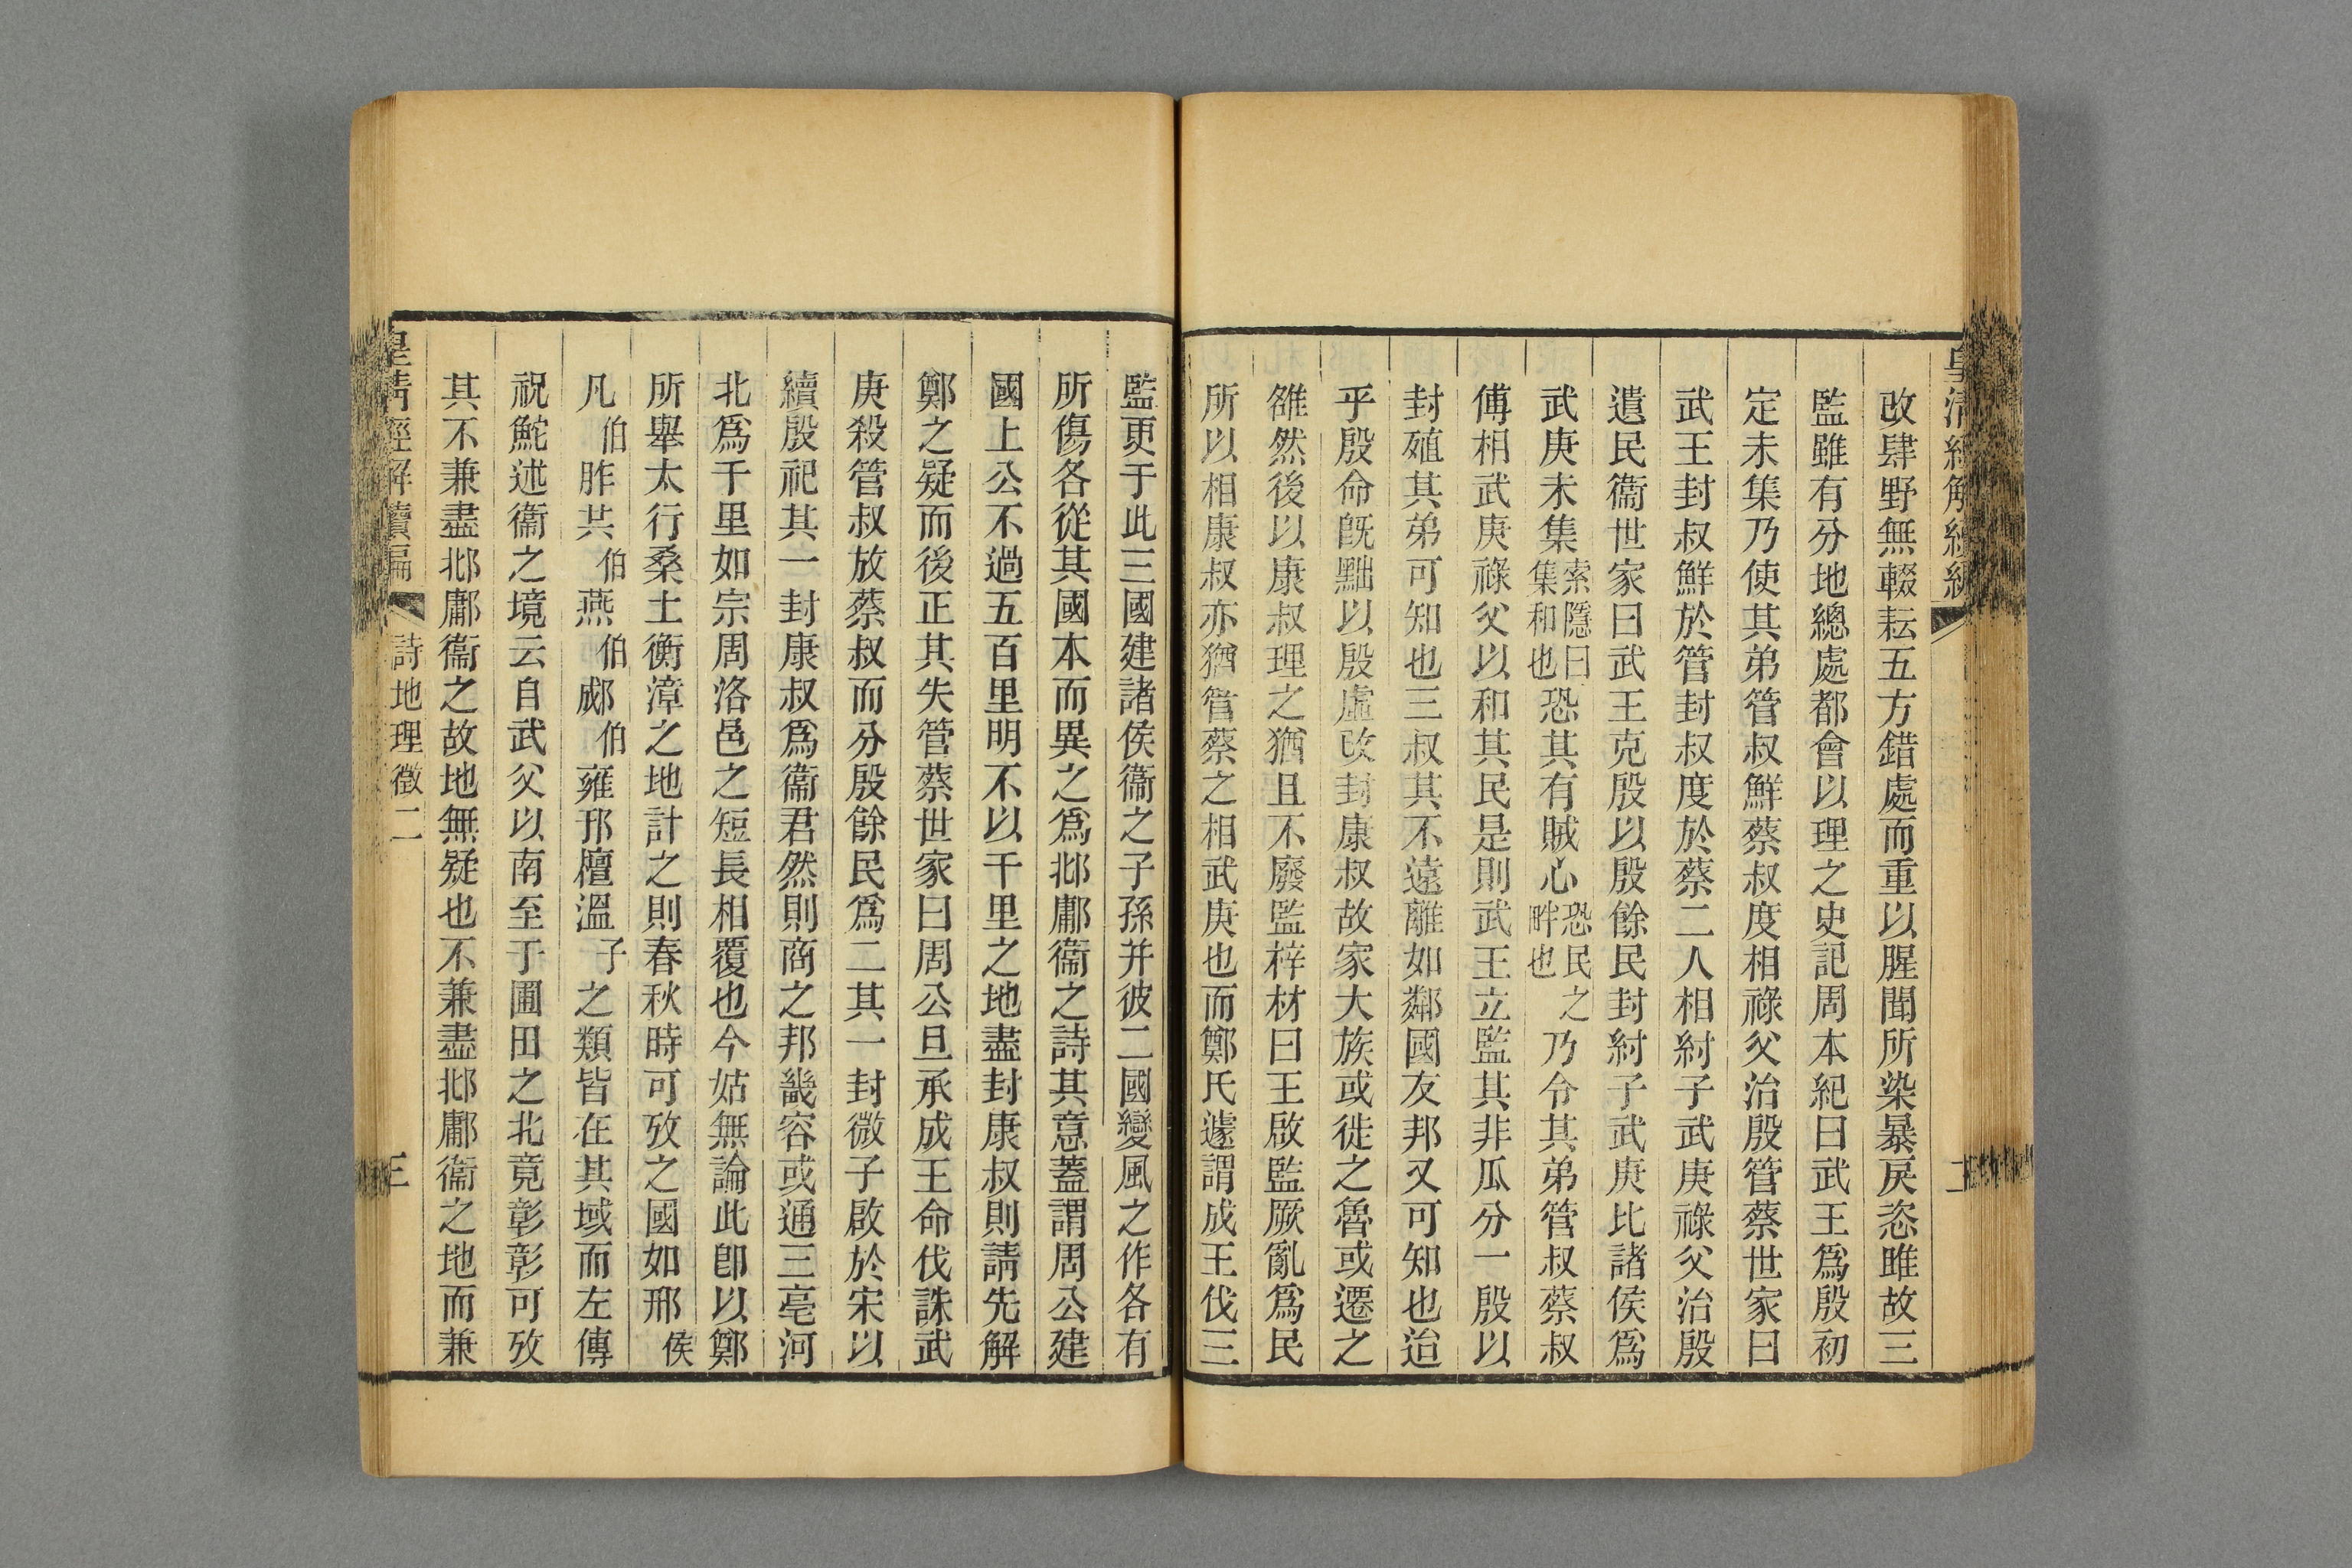 皇清經解續編
二
改肆野無輟耘五方錯處而重以腥聞所染暴戾恣雎故三
監雖有分地總處都會以理之史記周本紀曰武王爲殷初
定未集乃使其弟管叔鮮蔡叔度相祿父治殷管蔡世家曰
武王封叔鮮於管封叔度於蔡二人相紂子武庚祿父治殷
遺民衞世家曰武王克殷以殷餘民封紂子武庚比諸侯爲
武庚未集索隱曰集和也恐其有賊心恐民之畔也乃令其弟管叔蔡叔
傅相武庚祿父以和其民是則武王立監其非瓜分一殷以
封殖其弟可知也三叔其不遠離如鄰國友邦又可知也迨
乎殷命旣黜以殷虛改封康叔故家大族或徙之魯或遷之
雒然後以康叔理之猶且不廢監梓材曰王啟監厥亂爲民
所以相康叔亦猶管蔡之相武庚也而鄭氏遽謂成王伐三
監更于此三國建諸侯衞之子孫并彼二國變風之作各有
所傷各從其國本而異之爲邶鄘衞之詩其意蓋謂周公建
國上公不過五百里明不以千里之地盡封康叔則請先解
鄭之疑而後正其失管蔡世家曰周公旦承成王命伐誅武
庚殺管叔放蔡叔而分殷餘民爲二其一封微子啟於宋以
續殷祀其一封康叔爲衞君然則商之邦畿容或通三亳河
北爲千里如宗周洛邑之短長相覆也今姑無論此卽以鄭
所舉太行桑土衡漳之地計之則春秋時可攷之國如邢侯
凡伯胙共伯燕伯郕伯雍邘檀溫子之類皆在其域而左傳
祝鮀述衞之境云自武父以南至于圃田之北竟彰彰可攷
其不兼盡邶鄘衞之故地無疑也不兼盡邶鄘衞之地而兼
皇清經解續編
詩地理徵二
三